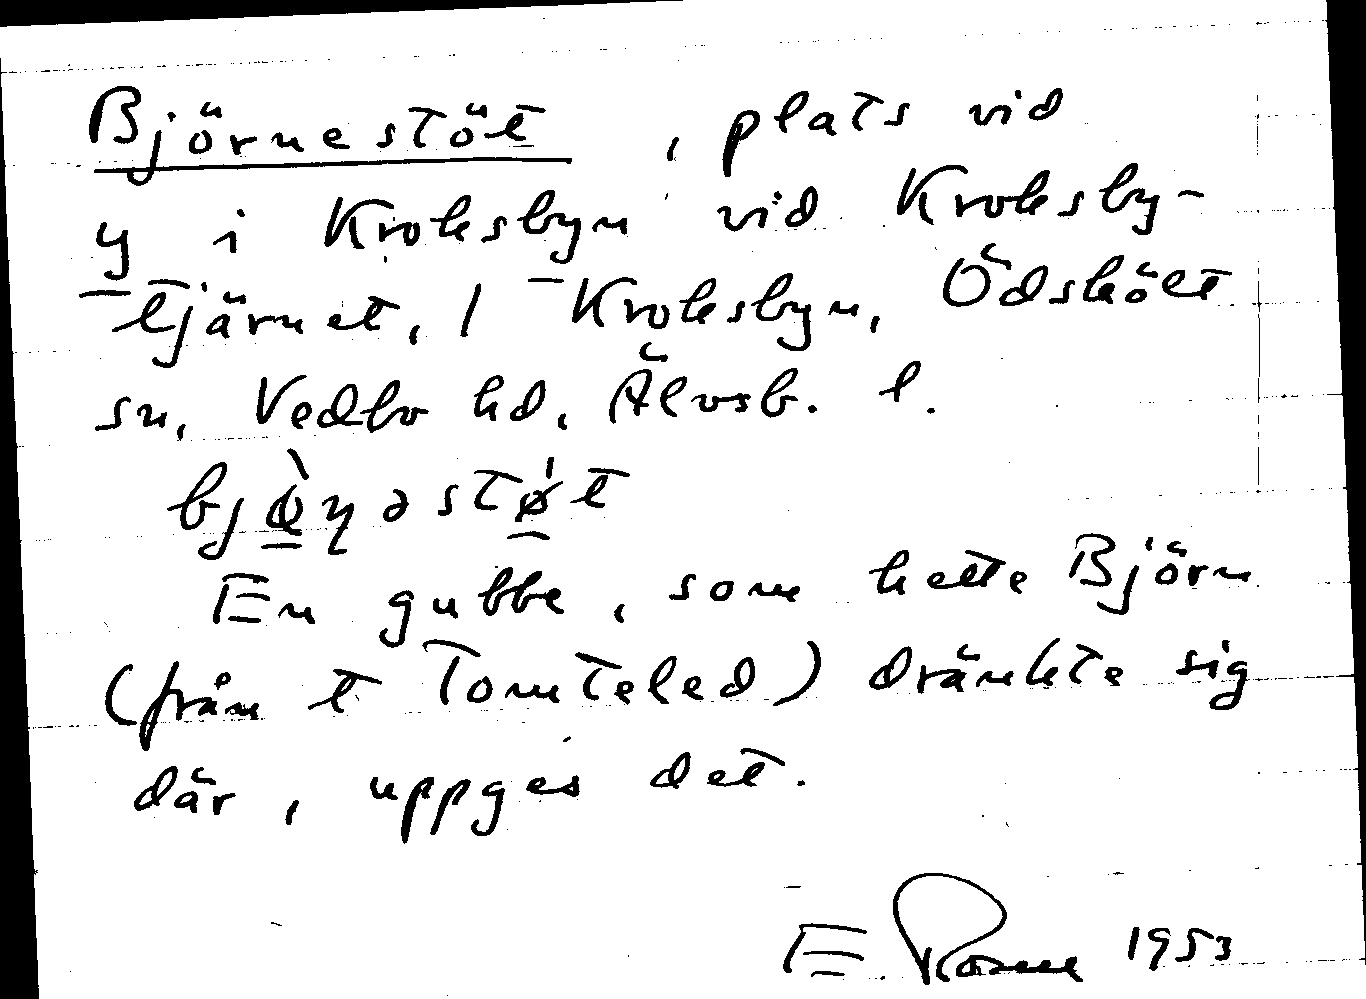 Björnestöt, plats vid
y i Kroksbyn vid Kroksby-
tjärnet, 1 Kroksbyn, Ödskölt
sn, Vedbo hd, Älvsb. l.
bjø̀ŋəstǿt
En gubbe, som hette Björn
(från t Tomteled) dränkte sig
där, uppges det.
E. 1953